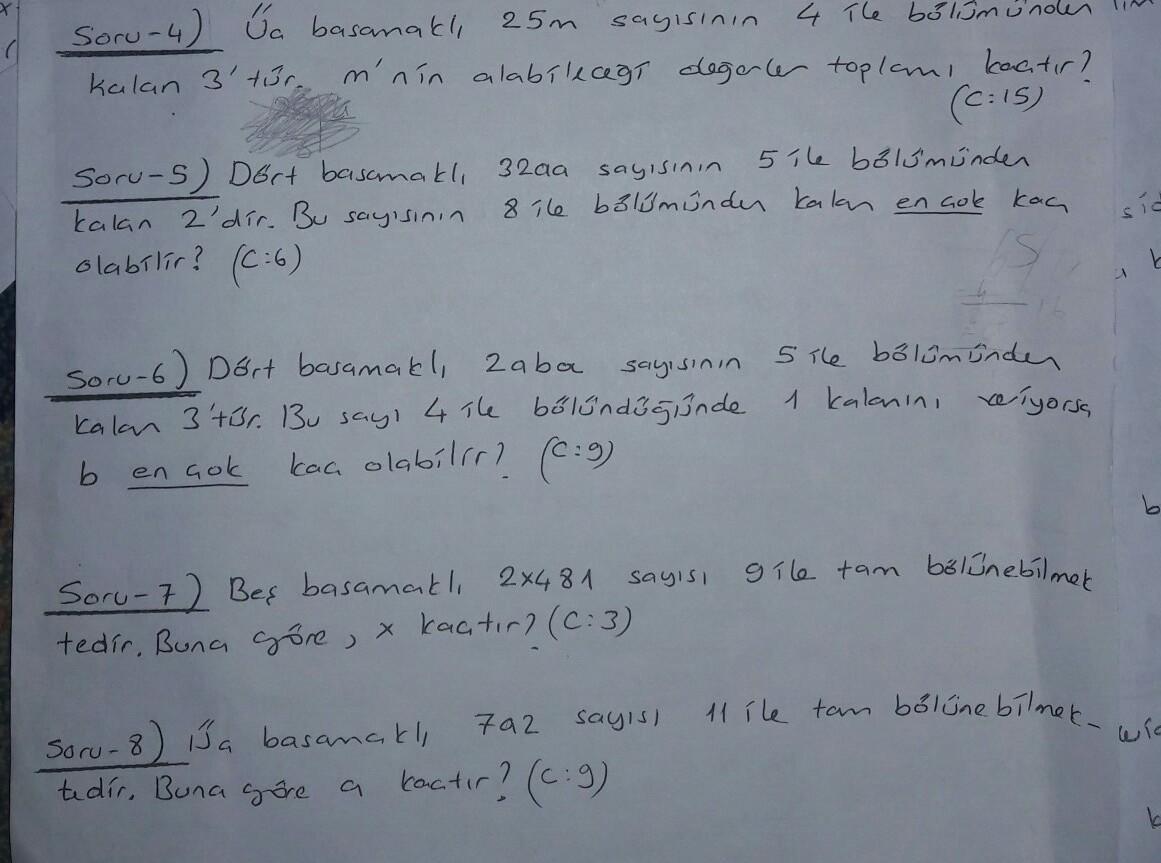 Soru-4) Üç basamaklı 25m sayısının 4 ile bölümünden
kalan 3'tür. m'nin alabileceği değerler toplamı kaçtır?
(C:15)
Soru-5) Dört basamaklı 32aa sayısının 5 ile bölümünden
kalan 2'dir. Bu sayısının 8 ile bölümünden kalan en çok kaç
olabilir? (C:6)
Soru-6) Dört basamaklı 2aba sayısının 5 ile bölümünden
kalan 3'tür. Bu sayı 4 ile bölündüğünde 1 kalanını veriyorsa,
b en çok kaç olabilir? (C:9)
Soru-7) Beş basamaklı 2x481 sayısı 9 ile tam bölünebilmek
tedir. Buna göre, x kaçtır? (C:3)
Soru-8) Üç basamaklı 7a2 sayısı 11 ile tam bölünebilmek-
tedir. Buna göre a kaçtır? (C:9)